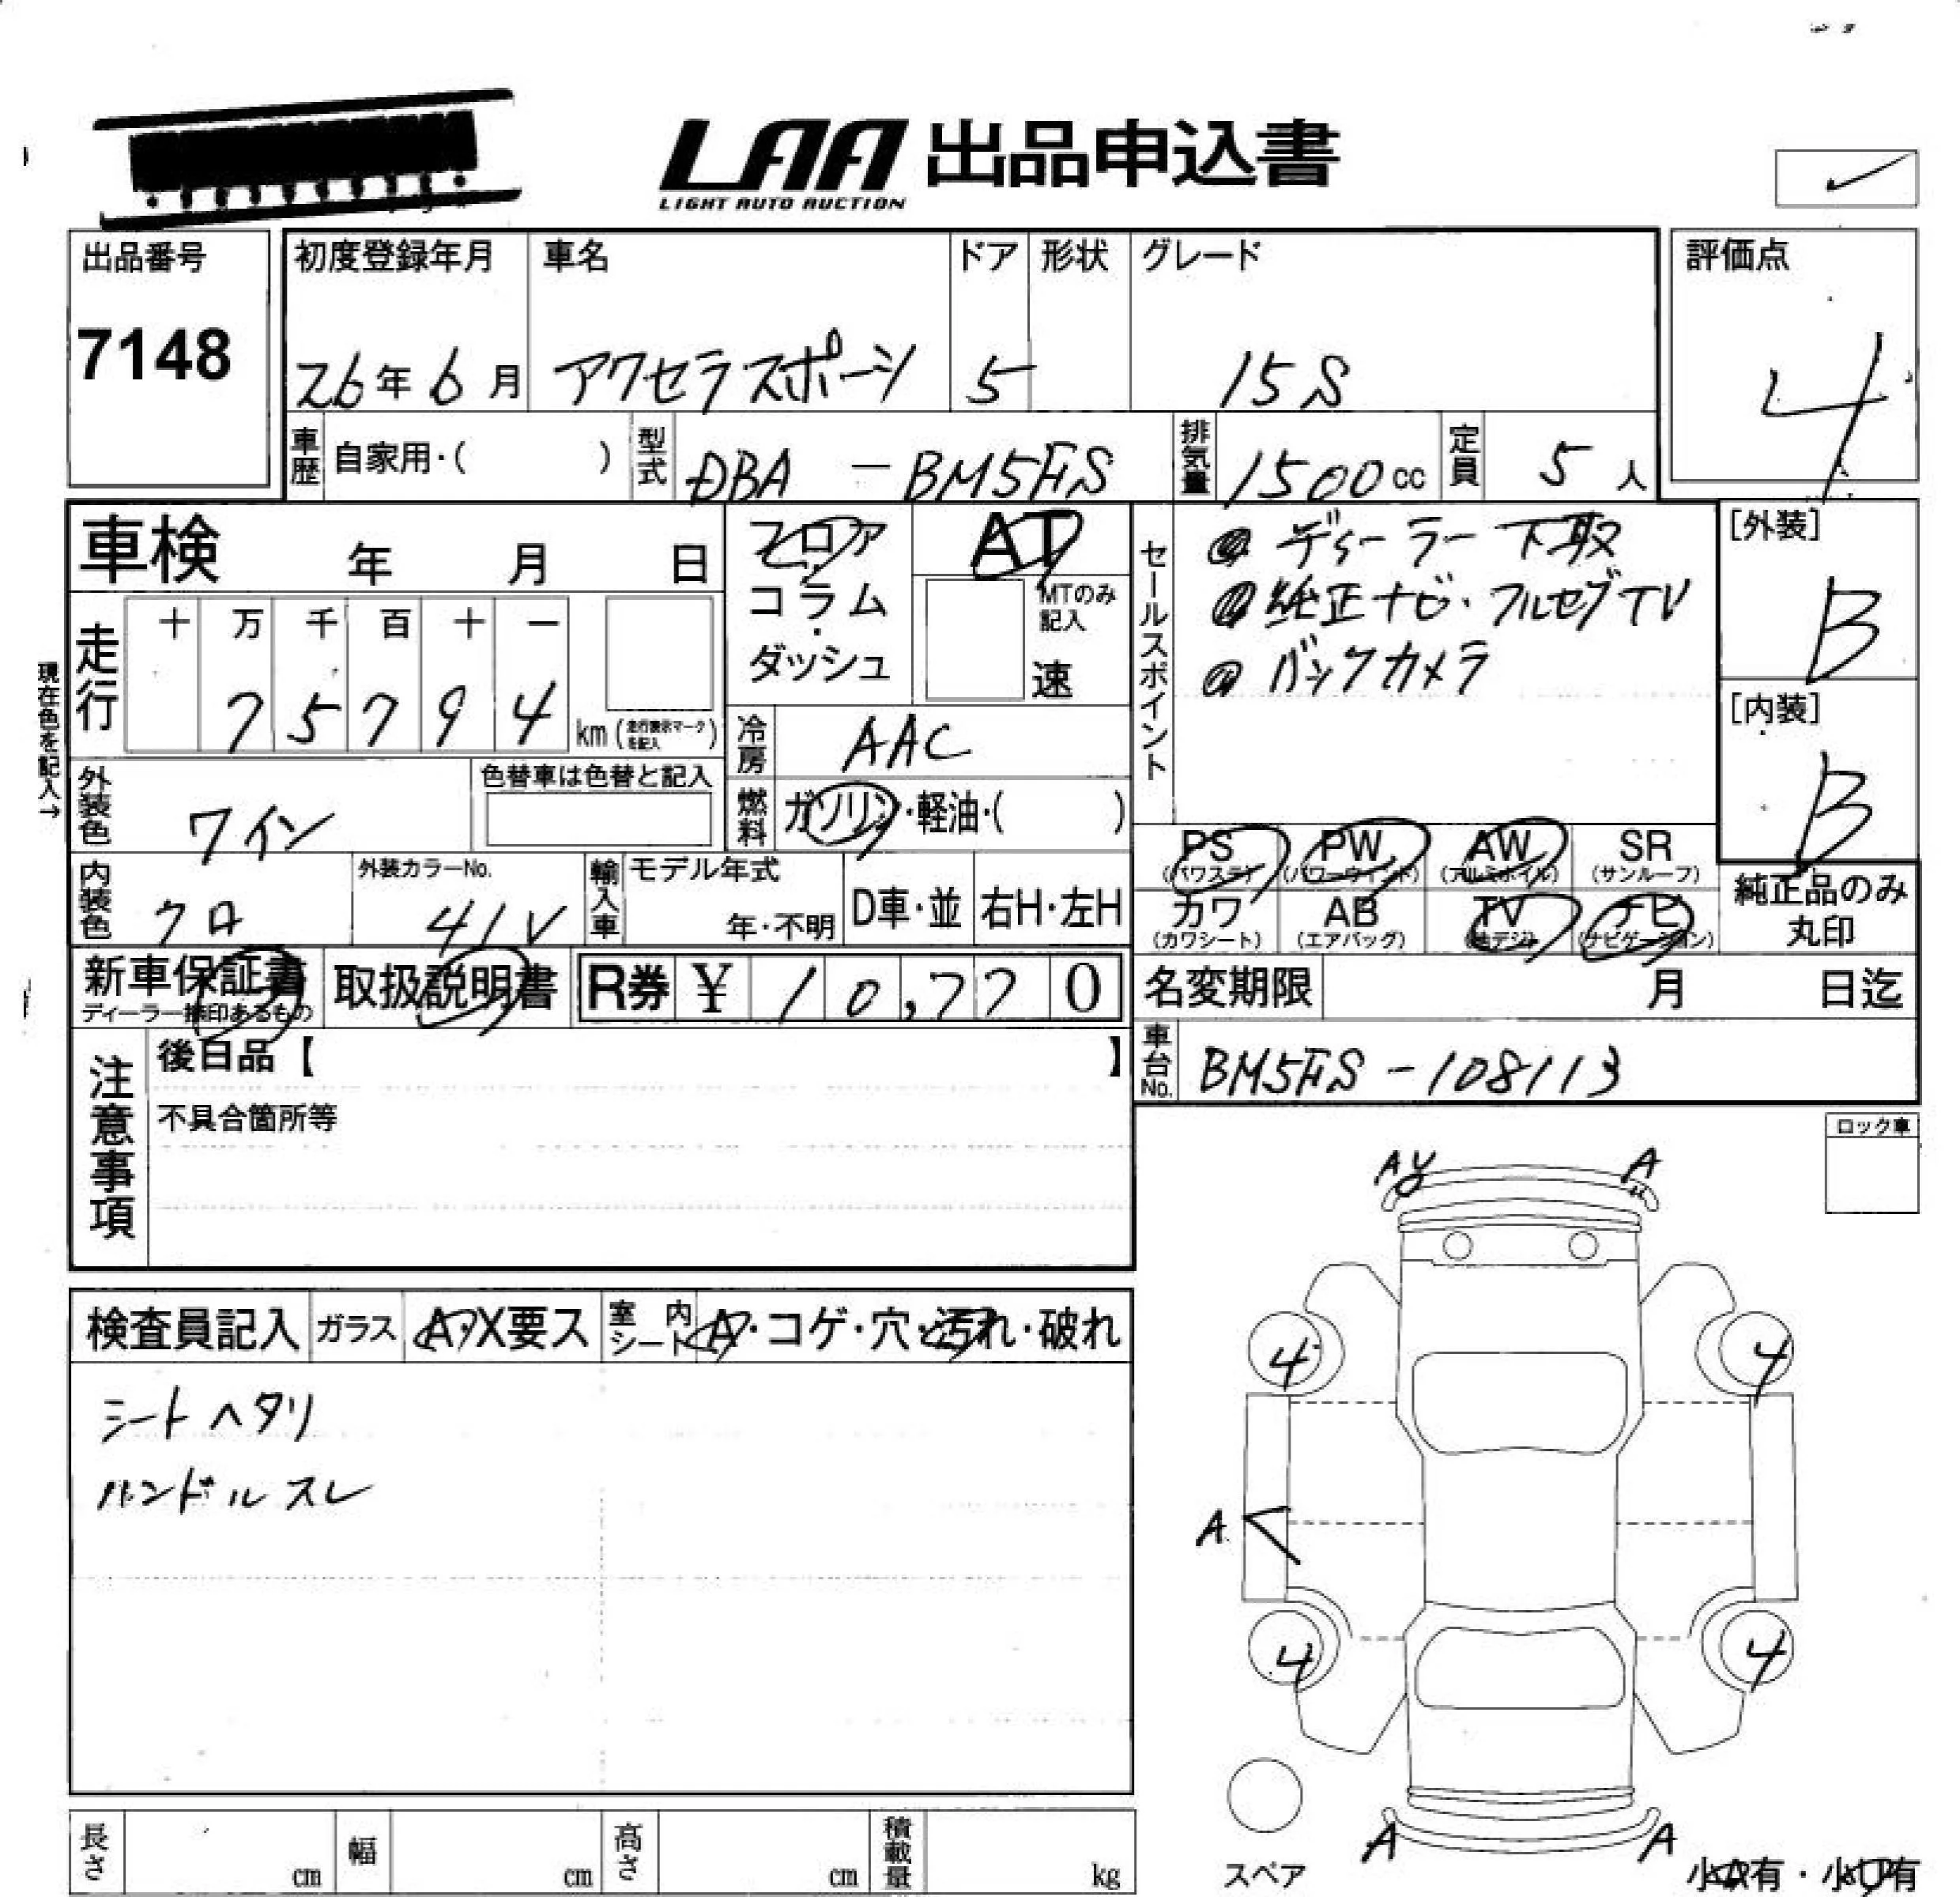 LAA 出品申込書
LIGHT AUTO AUCTION
出品番号
7148
初度登録年月
26年6月
車名
アクセラスポーツ
ドア
5
形状
グレード
15S
評価点
4
車歴 自家用・( )
型式 DBA - BM5FS
排気量 1500cc
定員 5人
車検 年 月 日
フロア・コラム・ダッシュ
AT
MTのみ記入
速
セールスポイント
ディーラー下取
純正ナビ・フルセグTV
バックカメラ
[外装]
B
[内装]
B
現在色を記入→
走行
十 万 千 百 十 一
7 5 7 9 4 km (走行表示マークを記入)
冷房 AAC
外装色 ワイン
色替車は色替と記入
燃料 ガソリン・軽油・( )
PS (パワステ)
PW (パワーウィンド)
AW (アルミホイル)
SR (サンルーフ)
カワ (カワシート)
AB (エアバッグ)
TV (地デジ)
ナビ (ナビゲーション)
純正品のみ丸印
内装色 クロ
外装カラーNo.
41V
輸入車 モデル年式
年・不明
D車・並
右H・左H
新車保証書
ディーラー捺印あるもの
取扱説明書
R券 ¥ 10,770
名変期限 月 日迄
車台No. BM5FS-108113
注意事項
後日品【 】
不具合箇所等
ロック車
検査員記入
ガラス A・X要ス
室内シート A・コゲ・穴・汚れ・破れ
シートヘタリ
ハンドルスレ
AY
A
4
4
A
4
4
A
A
スペア
長さ cm
幅 cm
高さ cm
積載量 kg